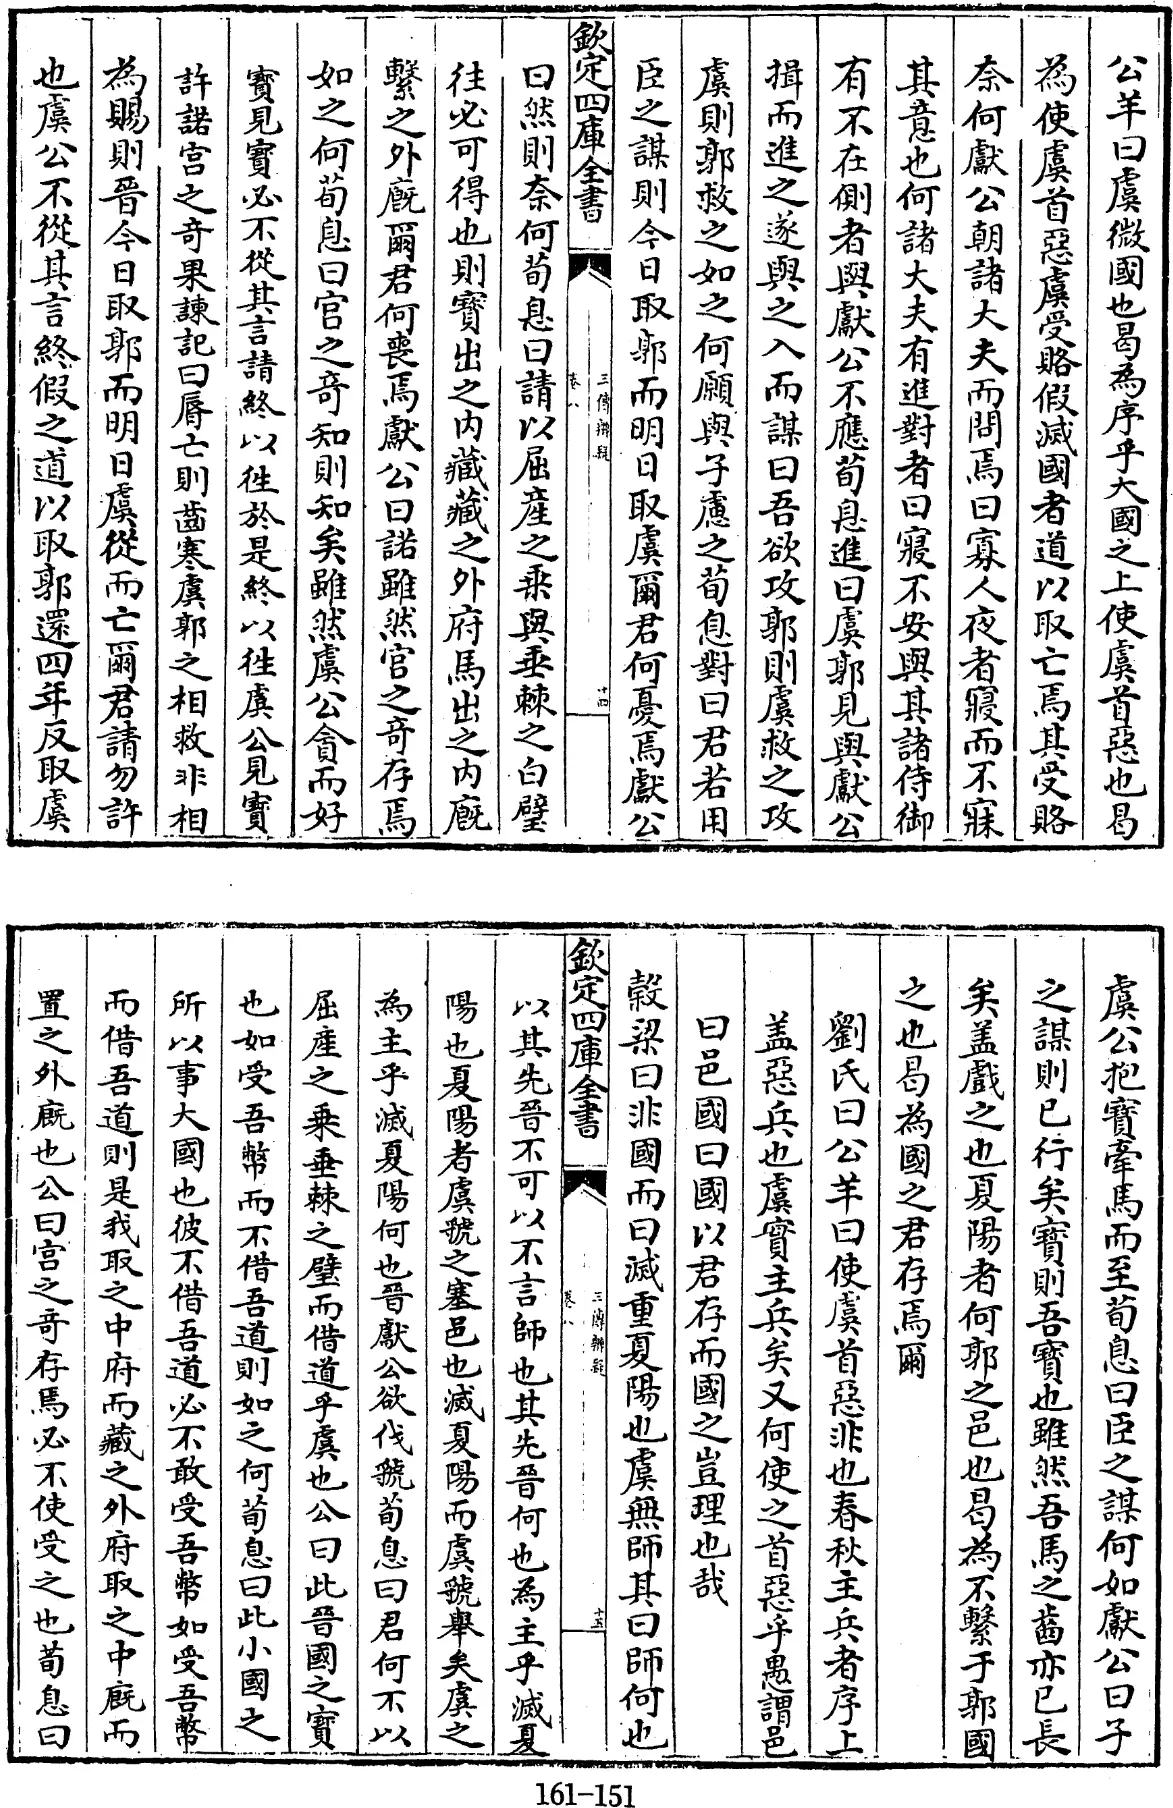 公羊曰虞微國也曷為序乎大國之上使虞首惡也曷
為使虞首惡虞受賂假滅國者道以取亡焉其受賂
奈何獻公朝諸大夫而問焉曰寡人夜者寢而不寐
其意也何諸大夫有進對者曰寢不安與其諸侍御
有不在側者與獻公不應荀息進曰虞郭見與獻公
揖而進之遂與之入而謀曰吾欲攻郭則虞救之攻
虞則郭救之如之何願與子慮之荀息對曰君若用
臣之謀則今日取郭而明日取虞爾君何憂焉獻公
欽定四庫全書
三傳辨疑
卷八
十四
曰然則奈何荀息曰請以屈產之乗與垂棘之白璧
往必可得也則寳出之内藏藏之外府馬出之内廐
繫之外廐爾君何喪焉獻公曰諾雖然宫之竒存焉
如之何荀息曰宫之竒知則知矣雖然虞公貪而好
寳見寳必不從其言請終以徃於是終以徃虞公見寳
許諾宫之竒果諫記曰脣亡則齒寒虞郭之相救非相
為賜則晉今日取郭而明日虞從而亡爾君請勿許
也虞公不從其言終假之道以取郭還四年反取虞
虞公抱寳牽馬而至荀息曰臣之謀何如獻公曰子
之謀則已行矣寳則吾寳也雖然吾馬之齒亦已長
矣盖戲之也夏陽者何郭之邑也曷為不繫于郭國
之也曷為國之君存焉爾
劉氏曰公羊曰使虞首惡非也春秋主兵者序上
盖惡兵也虞實主兵矣又何使之首惡乎愚謂邑
曰邑國曰國以君存而國之豈理也哉
榖梁曰非國而曰滅重夏陽也虞無師其曰師何也
欽定四庫全書
三傳辨疑
卷八
十五
以其先晉不可以不言師也其先晉何也為主乎滅夏
陽也夏陽者虞虢之塞邑也滅夏陽而虞虢舉矣虞之
為主乎滅夏陽何也晉獻公欲伐虢荀息曰君何不以
屈產之乗垂棘之璧而借道乎虞也公曰此晉國之寳
也如受吾幣而不借吾道則如之何荀息曰此小國之
所以事大國也彼不借吾道必不敢受吾幣如受吾幣
而借吾道則是我取之中府而藏之外府取之中廐而
置之外廐也公曰宫之竒存焉必不使受之也荀息曰
161-151